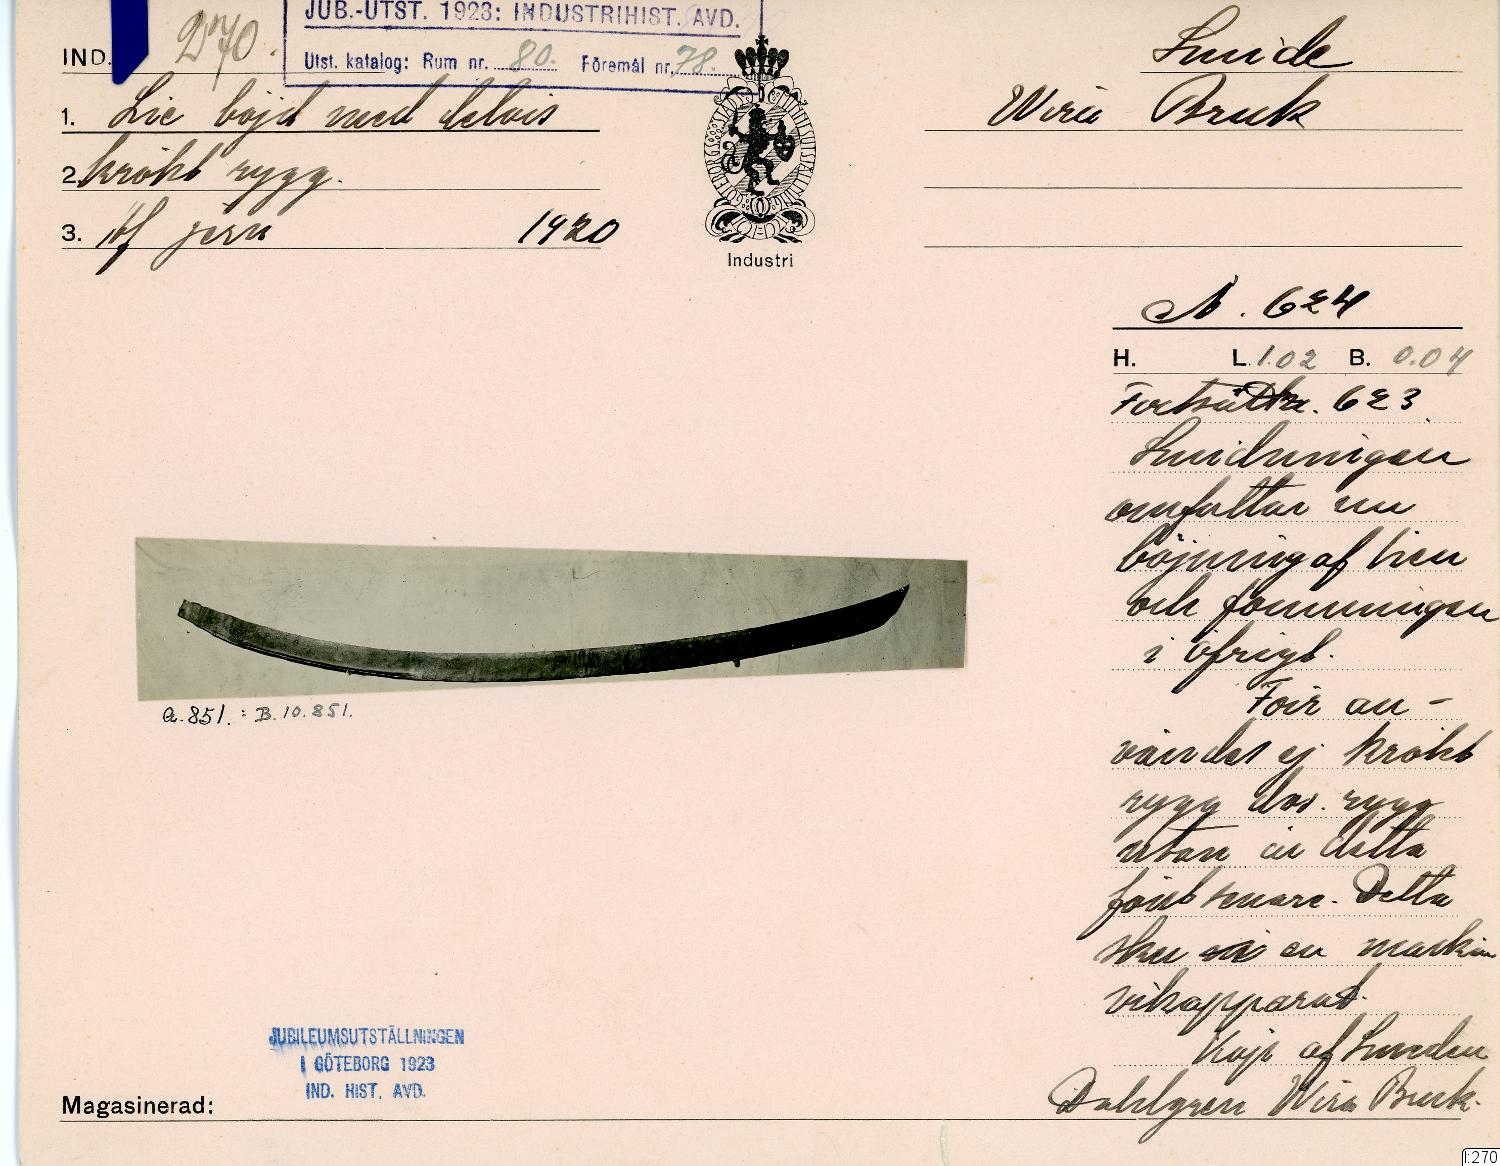 JUB.-UTST. 1923: INDUSTRIHIST. AVD.
IND. 270.
Utst. katalog: Rum nr. 80. Föremål nr. 78.
Smide
Wira Bruk
1. Lie böjd med delvis
2. krökt rygg.
3. Af jern 1920
GÖTEBORGS STADS
Industri
N. 624
H. L. 1.02 B. 0.04
Forts. 623
Smidningen
omfattar nu
böjning af lien
och formningen
i öfrigt.
Förr an-
vändes ej krökt
rygg dvs. rygg
utan är detta
först senare. Detta
sker i en maskin
vikapparat.
Köpt af Smeden
Dahlgren Wira Bruk.
a. 851. : B. 10.851.
JUBILEUMSUTSTÄLLNINGEN
I GÖTEBORG 1923
IND. HIST. AVD.
Magasinerad:
I:270